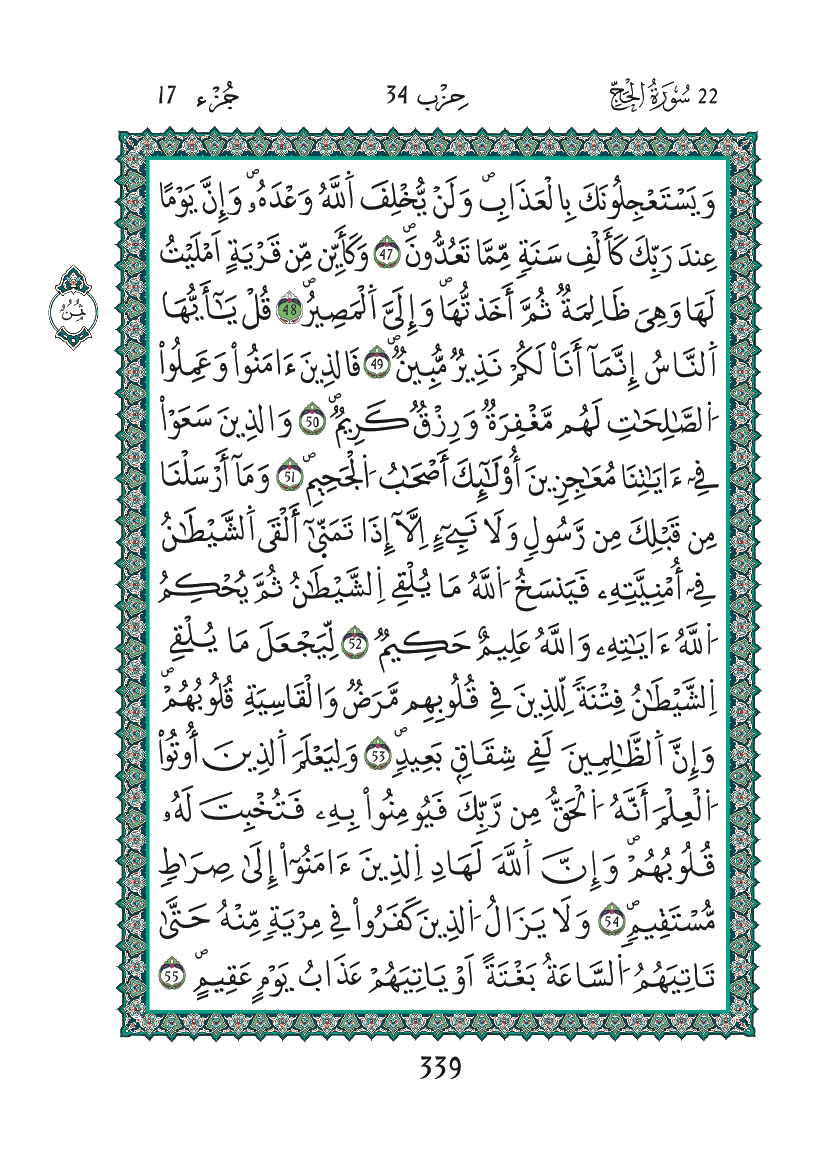 22 سُورَةُ الْحَجِّ حِزْب 34 جُزْء 17
وَيَسْتَعْجِلُونَكَ بِالْعَذَابِۖ وَلَنْ يُّخْلِفَ اَ۬للَّهُ وَعْدَهُۥۖ وَإِنَّ يَوْماً
عِندَ رَبِّكَ كَأَلْفِ سَنَةٖ مِّمَّا تَعُدُّونَۖ 47 وَكَأَيِّن مِّن قَرْيَةٍ اَمْلَيْتُ
لَهَا وَهِيَ ظَالِمَةٞ ثُمَّ أَخَذتُّهَاۖ وَإِلَيَّ اَ۬لْمَصِيرُۖ 48 قُلْ يَـٰٓأَيُّهَا
ثُمُن
اَ۬لنَّاسُ إِنَّمَآ أَنَا۠ لَكُمْ نَذِيرٞ مُّبِينٞۖ 49 فَالذِينَ ءَامَنُواْ وَعَمِلُواْ
اُ۬لصَّـٰلِحَـٰتِ لَهُم مَّغْفِرَةٞ وَرِزْقٞ كَرِيمٞۖ 50 وَالذِينَ سَعَوْاْ
فِےٓ ءَايَـٰتِنَا مُعَـٰجِزِينَ أُوْلَـٰٓئِكَ أَصْحَـٰبُ اُ۬لْجَحِيمِۖ 51 وَمَآ أَرْسَلْنَا
مِن قَبْلِكَ مِن رَّسُولٖ وَلَا نَبِےٓءٍ اِلَّآ إِذَا تَمَنَّىٰٓ أَلْقَى اَ۬لشَّيْطَـٰنُ
فِےٓ أُمْنِيَّتِهِۦ فَيَنسَخُ اُ۬للَّهُ مَا يُلْقِے اِ۬لشَّيْطَـٰنُ ثُمَّ يُحْكِمُ
اُ۬للَّهُ ءَايَـٰتِهِۦ وَاللَّهُ عَلِيمٌ حَكِيمٞ 52 لِّيَجْعَلَ مَا يُلْقِے
اِ۬لشَّيْطَـٰنُ فِتْنَةٗ لِّلذِينَ فِے قُلُوبِهِم مَّرَضٞ وَالْقَاسِيَةِ قُلُوبُهُمْۖ
وَإِنَّ اَ۬لظَّـٰلِمِينَ لَفِے شِقَاقِۢ بَعِيدٖۖ 53 وَلِيَعْلَمَ اَ۬لذِينَ أُوتُواْ
اُ۬لْعِلْمَ أَنَّهُ اُ۬لْحَقُّ مِن رَّبِّكَ فَيُومِنُواْ بِهِۦ فَتُخْبِتَ لَهُۥ
قُلُوبُهُمْۖ وَإِنَّ اَ۬للَّهَ لَهَادِ اِ۬لذِينَ ءَامَنُوٓاْ إِلَىٰ صِرَٰطٖ
مُّسْتَقِيمٖۖ 54 وَلَا يَزَالُ اُ۬لذِينَ كَفَرُواْ فِے مِرْيَةٖ مِّنْهُ حَتَّىٰ
تَاتِيَهُمُ اُ۬لسَّاعَةُ بَغْتَةً اَوْ يَاتِيَهُمْ عَذَابُ يَوْمٍ عَقِيمٍۖ 55
339